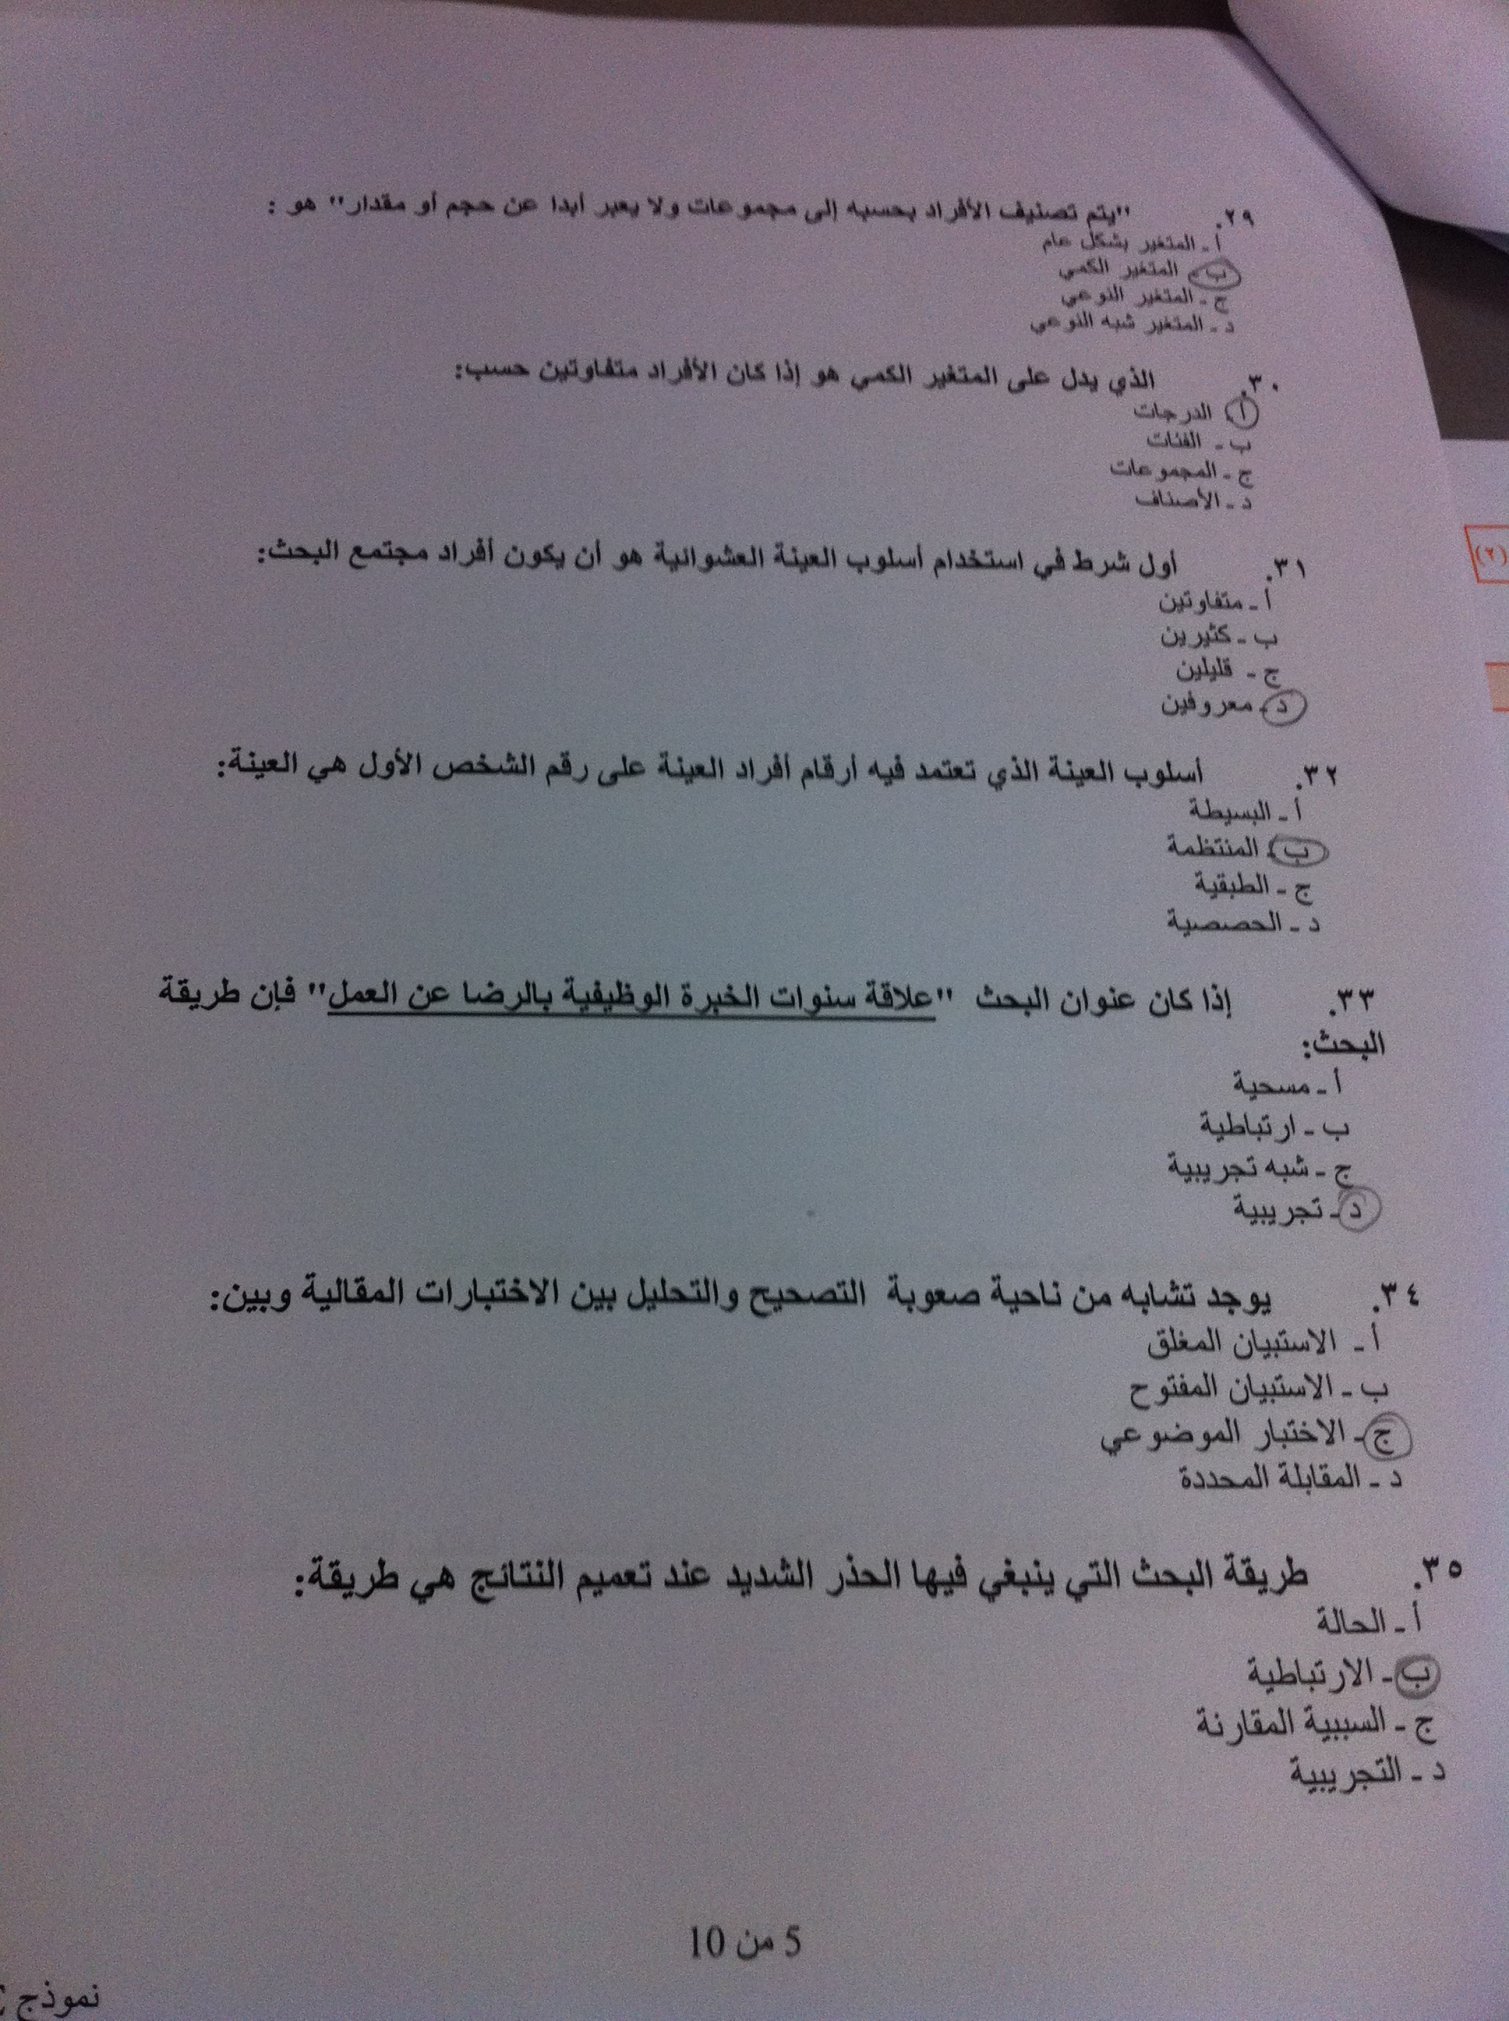 ٢٩. "يتم تصنيف الأفراد بحسبه إلى مجموعات ولا يعبر أبدا عن حجم أو مقدار" هو :
أ ـ المتغير بشكل عام
ب ـ المتغير الكمي
ج ـ المتغير النوعي
د ـ المتغير شبه النوعي
٣٠. الذي يدل على المتغير الكمي هو إذا كان الأفراد متفاوتين حسب:
أ ـ الدرجات
ب ـ الفئات
ج ـ المجموعات
د ـ الأصناف
٣١. أول شرط في استخدام أسلوب العينة العشوائية هو أن يكون أفراد مجتمع البحث:
أ ـ متفاوتين
ب ـ كثيرين
ج ـ قليلين
د ـ معروفين
(٢)
٣٢. أسلوب العينة الذي تعتمد فيه أرقام أفراد العينة على رقم الشخص الأول هي العينة:
أ ـ البسيطة
ب ـ المنتظمة
ج ـ الطبقية
د ـ الحصصية
٣٣. إذا كان عنوان البحث "علاقة سنوات الخبرة الوظيفية بالرضا عن العمل" فإن طريقة
البحث:
أ ـ مسحية
ب ـ ارتباطية
ج ـ شبه تجريبية
د ـ تجريبية
٣٤. يوجد تشابه من ناحية صعوبة التصحيح والتحليل بين الاختبارات المقالية وبين:
أ ـ الاستبيان المغلق
ب ـ الاستبيان المفتوح
ج ـ الاختبار الموضوعي
د ـ المقابلة المحددة
٣٥. طريقة البحث التي ينبغي فيها الحذر الشديد عند تعميم النتائج هي طريقة:
أ ـ الحالة
ب ـ الارتباطية
ج ـ السببية المقارنة
د ـ التجريبية
5 من 10
نموذج